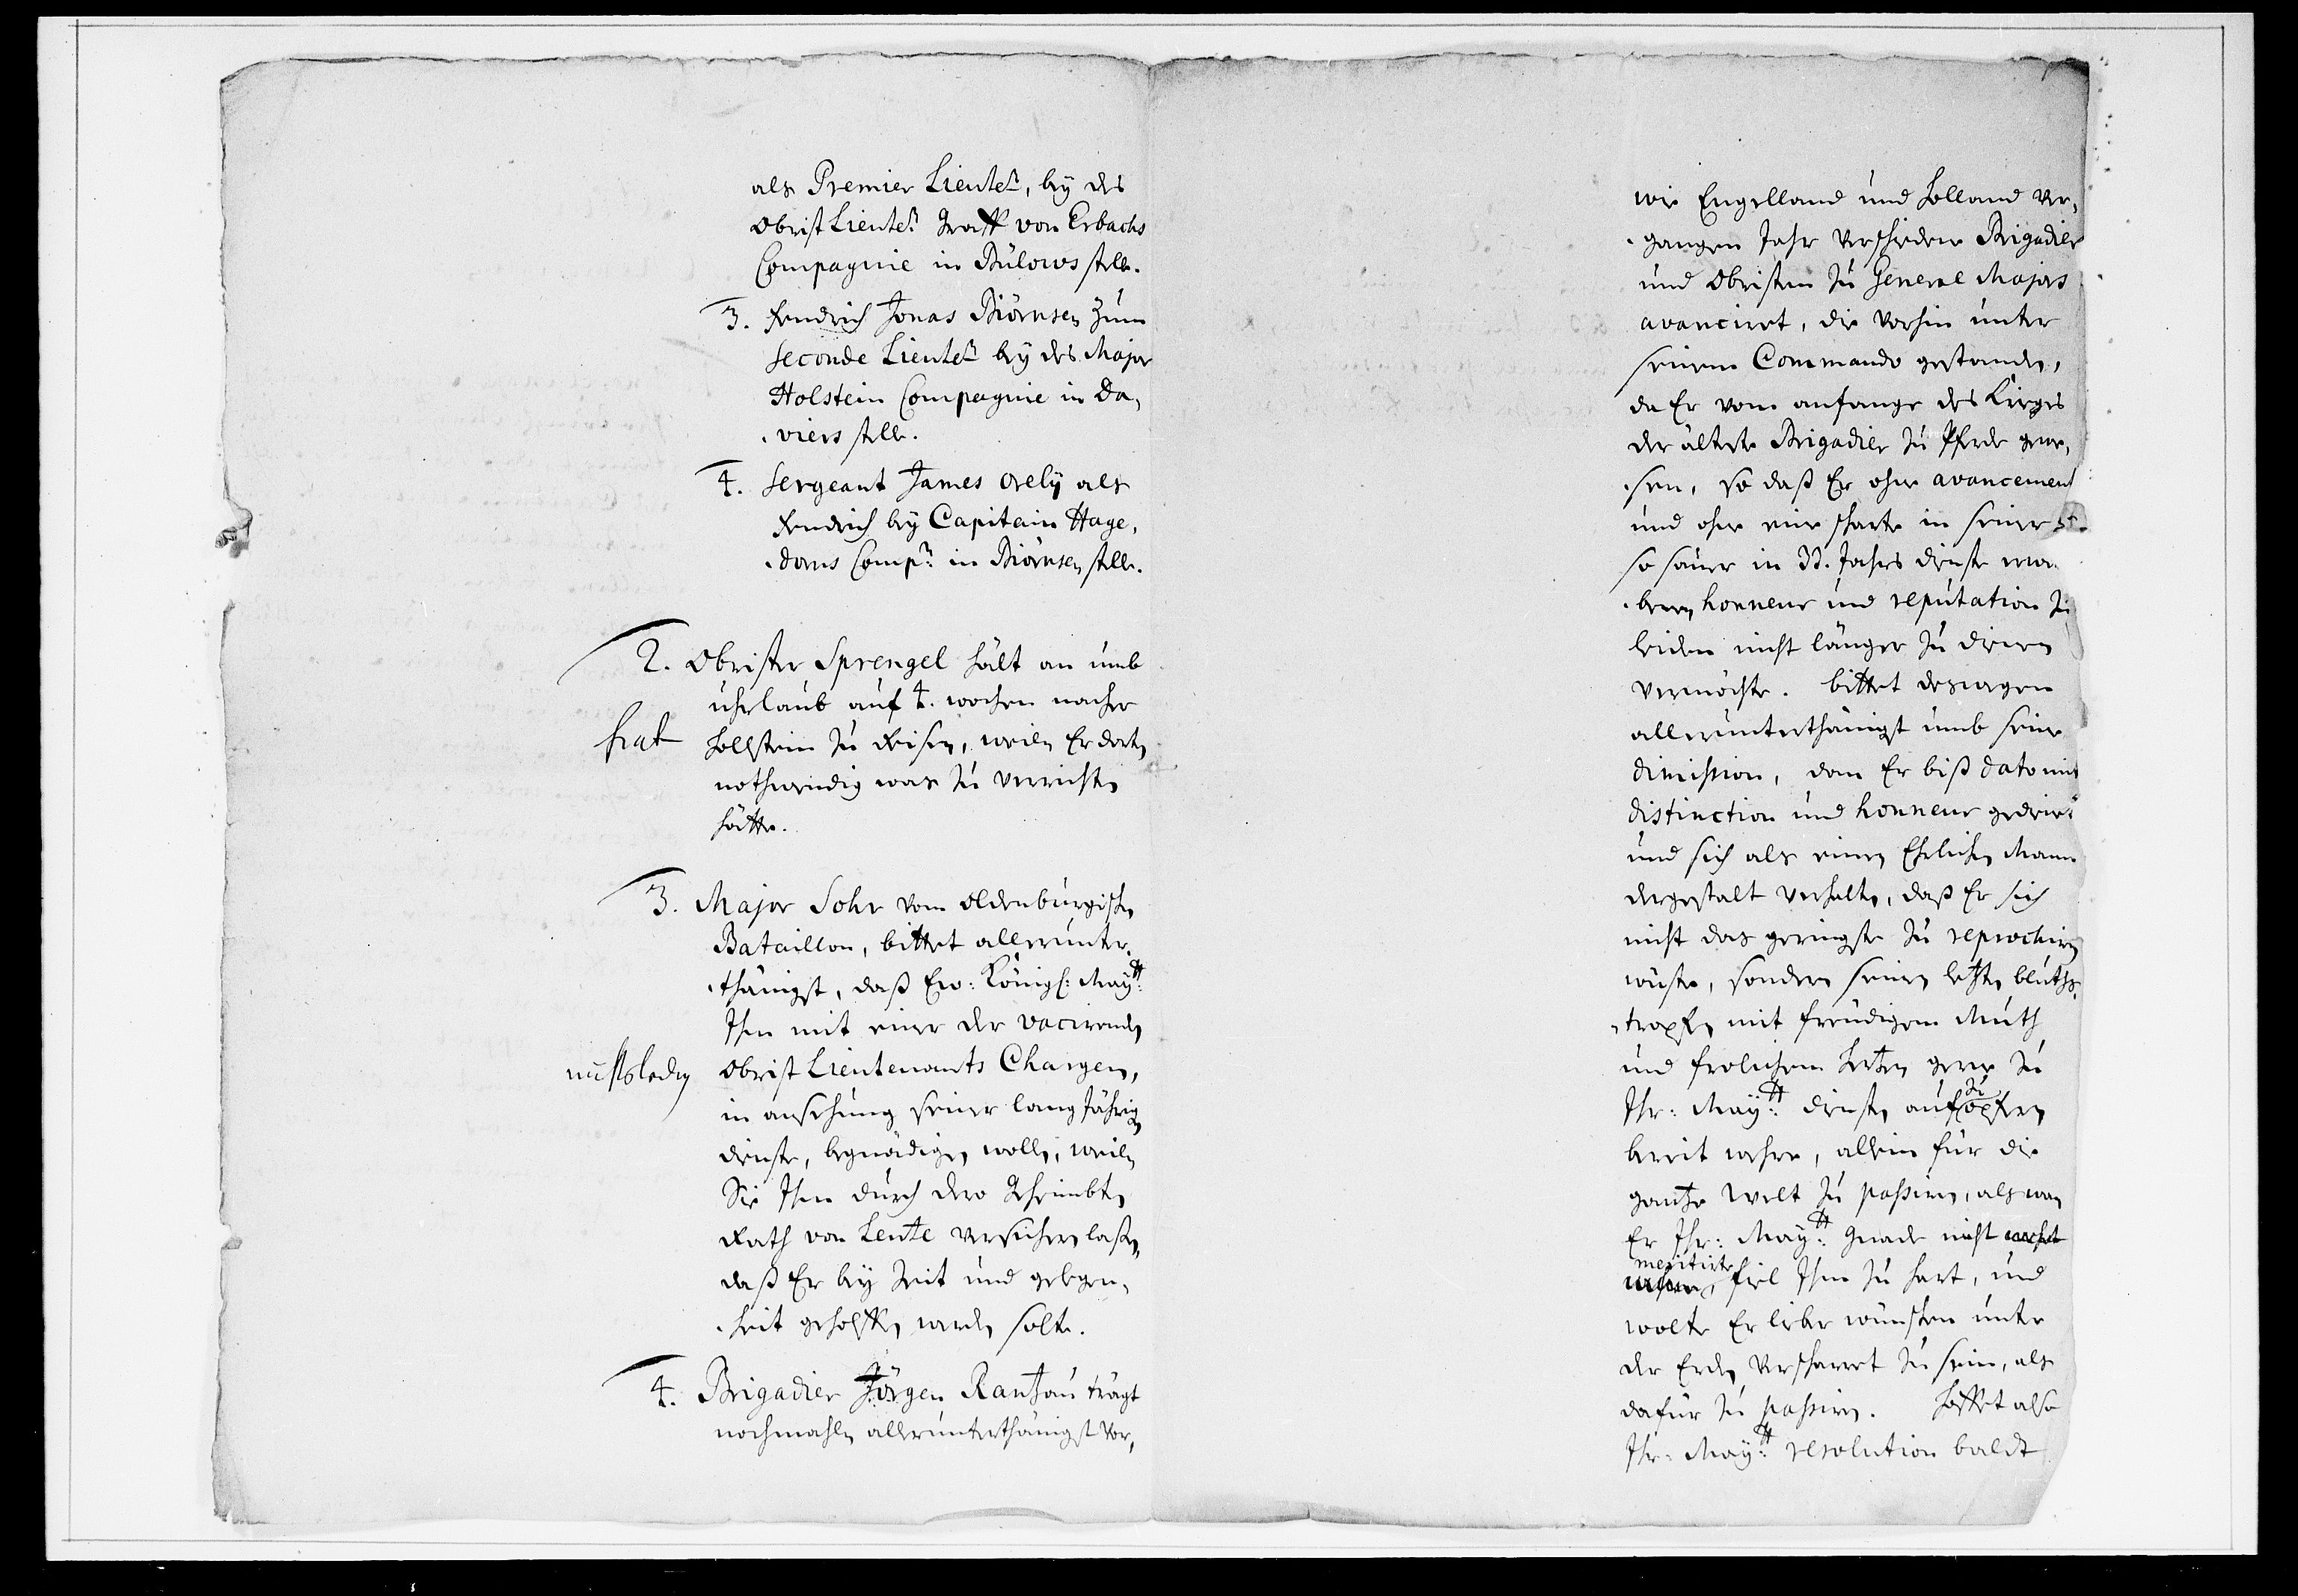 als Premier Lieutet, bey des
Obrist Lieutet Graff von Erbachs
Compagnie in Bülows stelle.
3. Fendrich Jonas Biörnsen zum
Seconde Lieutet bey des Major
Holstein Compagnie in Da,
viers stelle.
4. Sergeant James Orely als
Fendrich bey Capitain Hage,
dorns Comp: in Biörnsen stelle.
2. Obrister Sprengel hält an umb
uhrlaub auf 4. wochen nacher
hat
Hollstein zu Reisen, weiln Er dorten
nothwendig was zu verrichten
hätte.
3. Major Sohr vom Oldenburgischen
Bataillon, bittet allerunter,
thänigst, daß Ew: Königl: Maytt:
Ihn mit einer der vacirenden
Obrist Lieutenants Chargen,
in ansehung seiner lang Jährigen
dienste, begnädigen wollen, weiln
Sie Ihn durch dero Geheimbten
Rath von Lente versichern laßen,
daß Er bey Zeit und gelegen,
heit geholffen werden solte.
4. Brigadier Jörgen Rantzau trägt
nochmahln allerunterthänigst vor,
wie Engelland und Holland ver,
gangen Jahr verschiedene Brigadier
und Obristen zu General Majors
avanciret, die vorhin unter
seinem Commando gestanden,
da Er vom anfange des Krieges
der älteste Brigadier zu Pferde gewe,
sen, so daß Er ohne avancement
und ohne eine scharte in seiner
so sauer in 33. Jahrs dienste erwor
benen honneur und reputation zu
leiden nicht länger zu dienen
vermöchte. bittet deswegen
allerunterthänigst umb seine
dimission, dann Er biß dato mit
distinction und honneur gedient
und sich als einen Ehrlichen Mann
dergestalt verhalten, daß Er sich
nicht das geringste zu reprochiren
wüste, sondern seinen letzten bluths,
tropfen mit freudigem Muth
und frolichem Hertzen gerne zu
Ihr: Maytt: diensten auf zu opfern
bereit wehre, allein für die
gantze Welt zu passiren, als wan
Er Ihr: Maytt: Gnade nicht
meritirte, fiel Ihm zu hart, und
wolte Er lieber wünschen unter
der Erden verscharret zu sein, als
dafür zu passiren. Hoffet also
Ihr: Maytt: resolution baldt